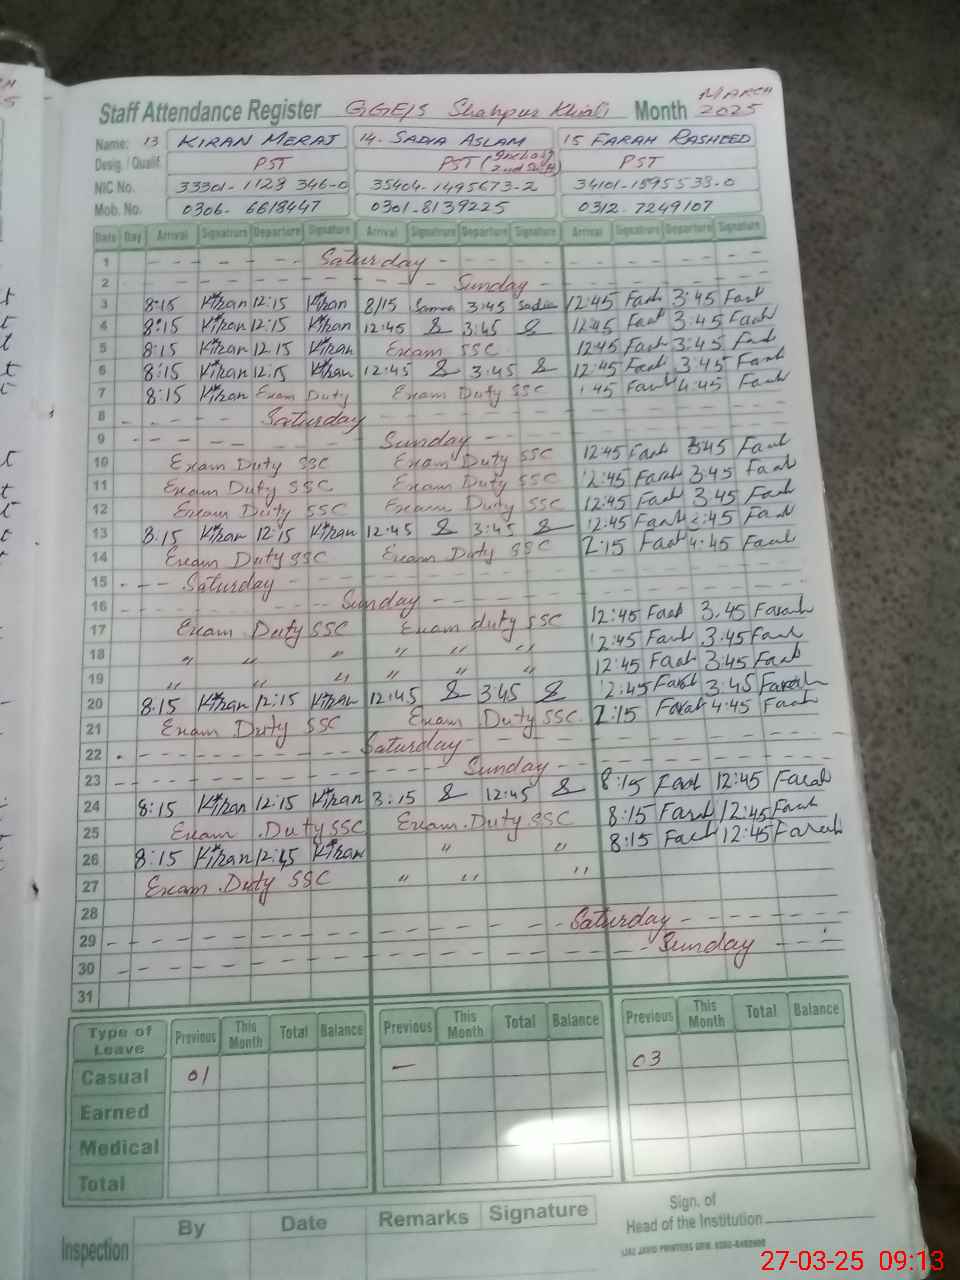 MARCH
Staff Attendance Register GGE/S Shahpur Khiali Month 2025
Name: 13 KIRAN MERAJ 14. SADIA ASLAM 15 FARAH RASHEED
Desig. / Qualif. PST PST (Incharg 2nd Shift) PST
NIC No. 33301-1128346-0 35404-1495673-2 34101-1595533-0
Mob. No. 0306-6618447 0301-8139225 0312-7249107
Date Day Arrival Signature Departure Signature Arrival Signature Departure Signature Arrival Signature Departure Signature
1 Saturday
2 Sunday
3 8:15 Kiran 12:15 Kiran 8/15 3:45 Sadia 12:45 Farah 3:45 Farah
4 8:15 Kiran 12:15 Kiran 12:45 3:45 12:45 Farah 3:45 Farah
5 8:15 Kiran 12:15 Kiran Exam SSC 12:45 Farah 3:45 Farah
6 8:15 Kiran 12:15 Kiran 12:45 3:45 12:45 Farah 3:45 Farah
7 8:15 Kiran Exam Duty Exam Duty SSC :45 Farah 4:45 Farah
8 Saturday
9 Sunday
10 Exam Duty SSC Exam Duty SSC 12:45 Farah 3:45 Farah
11 Exam Duty SSC Exam Duty SSC 2:45 Farah 3:45 Farah
12 Exam Duty SSC Exam Duty SSC 12:45 Farah 3:45 Farah
13 8:15 Kiran 12:15 Kiran 12:45 3:45 12:45 Farah 3:45 Farah
14 Exam Duty SSC Exam Duty SSC 2:15 Farah 4:45 Farah
15 Saturday
16 Sunday
17 Exam Duty SSC Exam duty SSC 12:45 Farah 3:45 Farah
18 " " " " " " 12:45 Farah 3:45 Farah
19 " " " " " " 12:45 Farah 3:45 Farah
20 8:15 Kiran 12:15 Kiran 12:45 3:45 12:45 Farah 3:45 Farah
21 Exam Duty SSC Exam Duty SSC 2:15 Farah 4:45 Farah
22 Saturday
23 Sunday
24 8:15 Kiran 12:15 Kiran 8:15 12:45 8:15 Farah 12:45 Farah
25 Exam Duty SSC Exam Duty SSC 8:15 Farah 12:45 Farah
26 8:15 Kiran 12:45 Kiran " " 8:15 Farah 12:45 Farah
27 Exam Duty SSC " " "
28
29 Saturday
30 Sunday
31
Type of Leave Previous This Month Total Balance Previous This Month Total Balance Previous This Month Total Balance
Casual 01 — 03
Earned
Medical
Total
Inspection By Date Remarks Signature
Sign. of
Head of the Institution
27-03-25 09:13